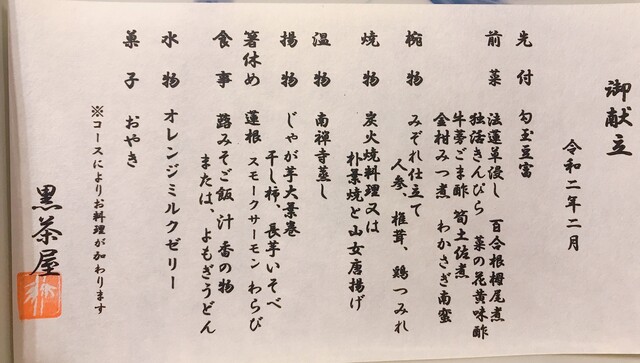 御献立
令和二年二月
先付 勾玉豆富
前菜 法蓮草浸し 百合根栂尾煮
独活きんぴら 菜の花黄味酢
牛蒡ごま酢 筍土佐煮
金柑みつ煮 わかさぎ南蛮
椀物 みぞれ仕立て
人参、椎茸、鶏つみれ
焼物 炭火焼料理又は
朴葉焼と山女唐揚げ
温物 南禅寺蒸し
揚物 じゃが芋大葉巻
干し柿、長芋いそべ
箸休め 蓮根 スモークサーモン わらび
食事 蕗みそご飯 汁 香の物
または、よもぎうどん
水物 オレンジミルクゼリー
菓子 おやき
※コースによりお料理が加わります
黒茶屋